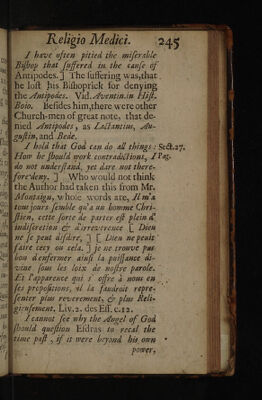 Religio Medici. 245
I have often pitied the miserable
Bishop that suffered in the cause of
Antipodes.] The suffering was, that
he lost his Bishoprick for denying
the Antipodes. Vid. Aventin. in Hist.
Boio. Besides him, there were other
Church-men of great note, that de-
nied Antipodes, as Lactantius, Au-
gustin, and Bede.
I hold that God can do all things: Sect. 27.
How he should work contradictions, I Pag.
do not understand, yet dare not there-
fore deny.] Who would not think
the Author had taken this from Mr.
Montaign, whose words are, Il m'a
tous jours semble qu'a un homme Chri-
stien, cette sorte de parler est plein d'
indiscretion & d'irreverence [Dieu
ne se peut disdire,] [Dieu ne peut
faire cecy ou cela.] je ne trouve pas
bon d'enfermer ainsi la puissance di-
vine sous les loix de nostre parole.
Et l'apparence qui s' offre à nous en
ses propositions, il la faudroit repre-
senter plus reverement, & plus Reli-
gieusement. Liv. 2. des Ess. c. 12.
I cannot see why the Angel of God
should question Esdras to recal the
time past, if it were beyond his own
power,